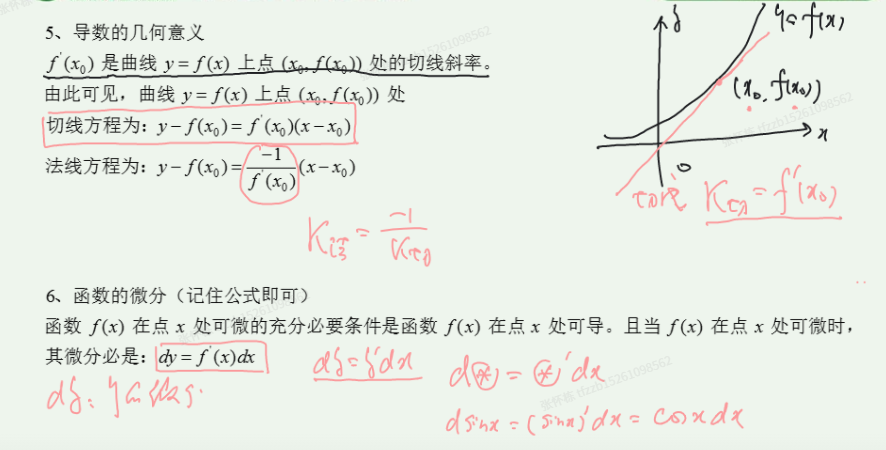 5、导数的几何意义
f'(x₀) 是曲线 y=f(x) 上点 (x₀, f(x₀)) 处的切线斜率。
由此可见，曲线 y=f(x) 上点 (x₀, f(x₀)) 处
切线方程为：y−f(x₀)=f'(x₀)(x−x₀)
法线方程为：y−f(x₀)=\frac{-1}{f'(x₀)}(x−x₀)
K法=\frac{-1}{K切}
y
y=f(x)
(x₀, f(x₀))
x
0
切线 K切=f'(x₀)
6、函数的微分（记住公式即可）
函数 f(x) 在点 x 处可微的充分必要条件是函数 f(x) 在点 x 处可导。且当 f(x) 在点 x 处可微时，
其微分必是：dy=f'(x)dx
dy=y'dx
d⊛=⊛'dx
dsinx=(sinx)'dx=cosxdx